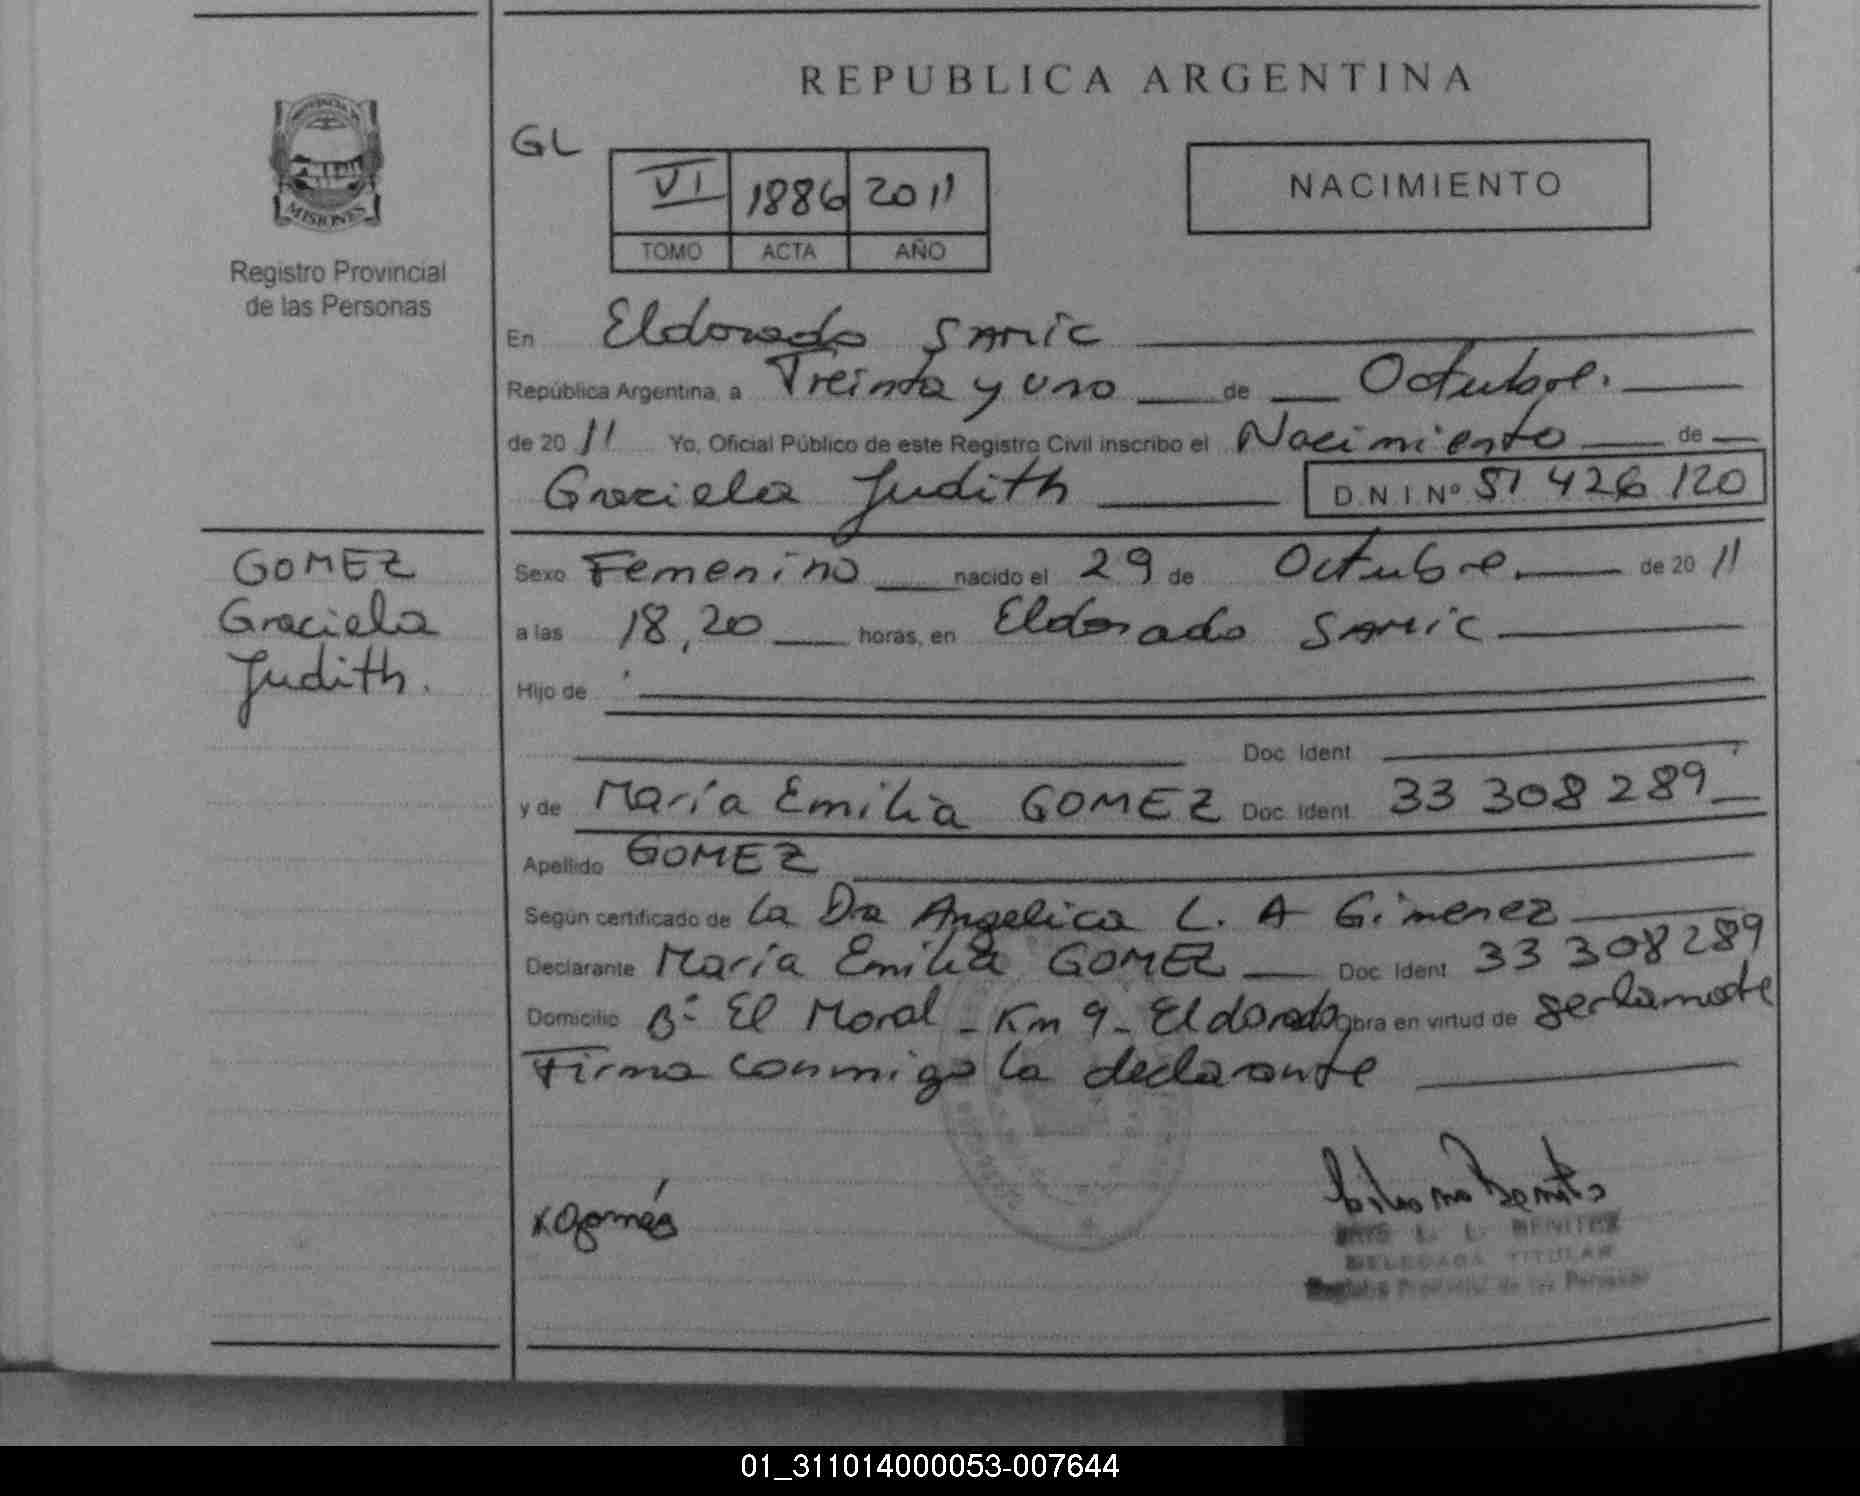 REPUBLICA ARGENTINA
PROVINCIA DE
MISIONES
Registro Provincial
de las Personas
GL
VI 1886 2011
TOMO ACTA AÑO
NACIMIENTO
En Eldorado SAMIC
República Argentina, a Treinta y uno de Octubre.
de 20 11 Yo, Oficial Público de este Registro Civil inscribo el Nacimiento de
Graciela Judith D.N.I. Nº 51 426 120
GOMEZ
Graciela
Judith.
Sexo Femenino nacido el 29 de Octubre. de 20 11
a las 18,20 horas, en Eldorado SAMIC
Hijo de
Doc. Ident.
y de María Emilia GOMEZ Doc. Ident. 33 308 289
Apellido GOMEZ
Según certificado de la Dra Angelica L. A Gimenez
Declarante María Emilia GOMEZ Doc. Ident. 33 308 289
Domicilio Bº El Moral - Km 9 - Eldorado Obra en virtud de
Firma conmigo la declarante
L. L. BENITEZ
DELEGADA TITULAR
Registro Provincial de las Personas
01_311014000053-007644